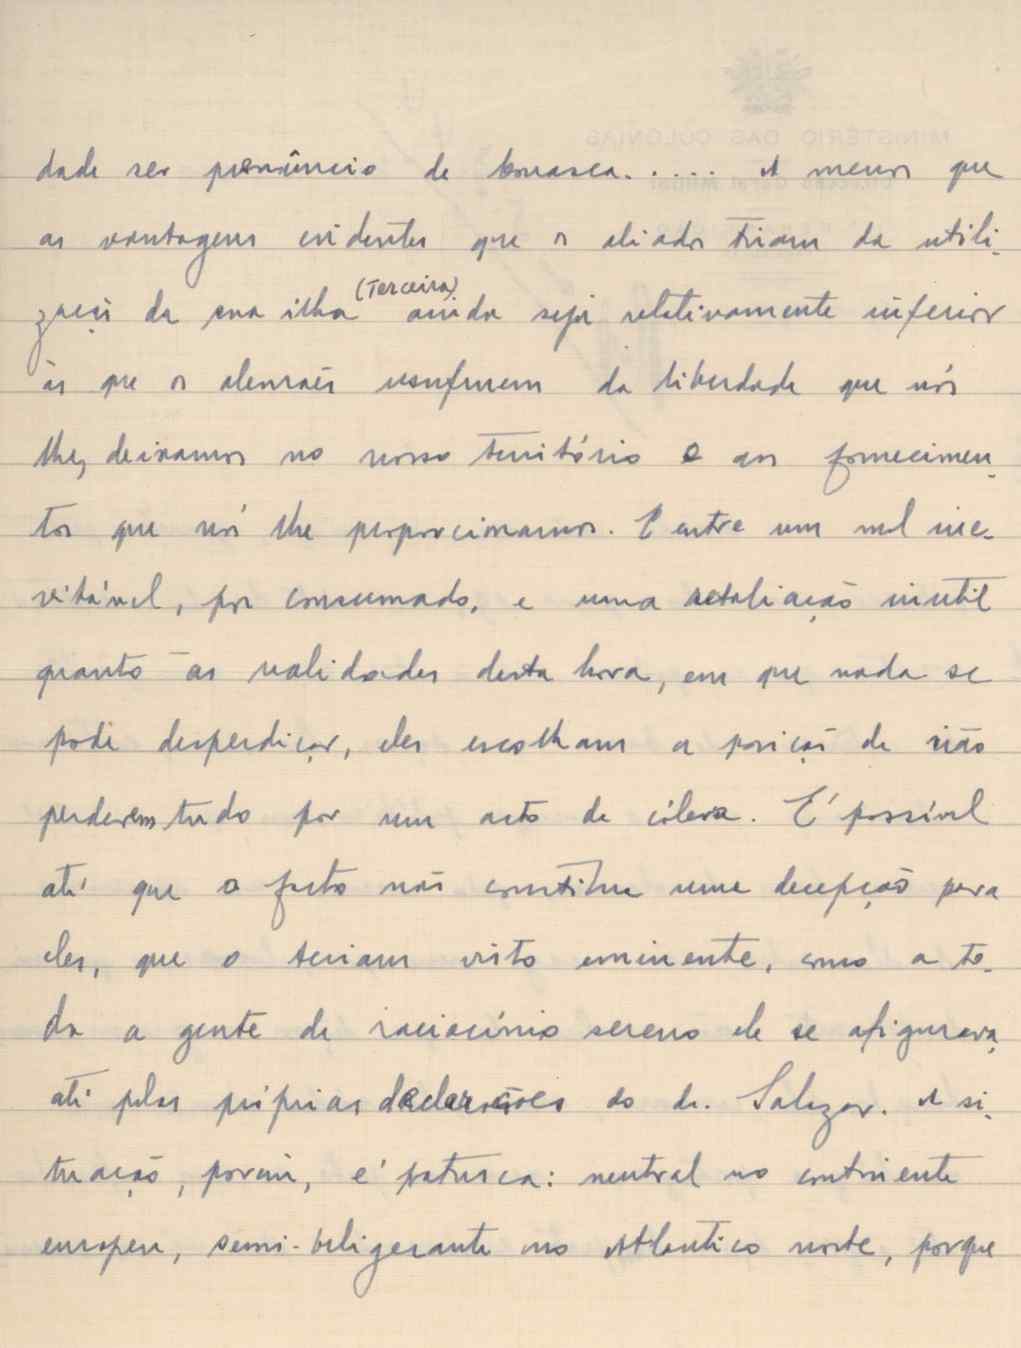 MINISTÉRIO DAS COLÓNIAS
dade ser prenúncio de borrasca..... A menos que
as vantagens evidentes que os aliados tiram da utili-
zação da sua ilha (Terceira) ainda seja relativamente inferior
às que os alemães usufruem da liberdade que nós
lhes deixamos no nosso território e aos fornecimen-
tos que nós lhe proporcionamos. E entre um mal ine-
vitável, por consumado, e uma retaliação inutil
quanto às realidades desta hora, em que nada se
pode desperdiçar, eles escolham a posição de não
perderem tudo por um acto de cólera. É possível
até que o facto não constitue uma decepção para
eles, que o teriam visto eminente, como a to-
da a gente de raciocínio sereno ele se afigurava,
até pelas próprias declarações do dr. Salazar. A si-
tuação, porém, é patusca: neutral no continente
europeu, semi-beligerante no Atlantico norte, porque